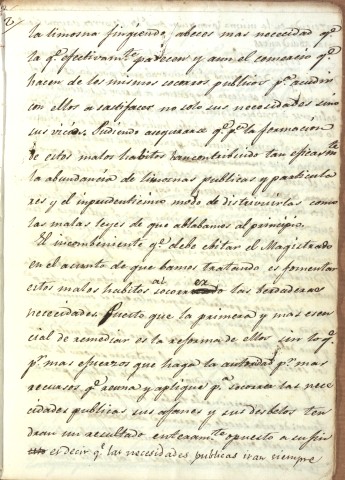 la limosna fingiendo, abeces mas necesidad qe
la qe efectivamte padecen y aun el comercio qe
hacen de los mismos socorros publicos pa acudir
con ellos a satisfacer no solo sus necesidades sino
sus vicios. Pudiendo asegurarse qe pa la formacion
de estos malos habitos han contribuido tan eficazmte
la abundáncia de limosnas publicas y particula
res y el inpudentisimo modo de distribuirlas como
las malas leyes de que ablabamos al principio.
El incombeniente qe debe ebitar el Magistrado
en el asunto de que bamos tratando es fomentar
estos malos habitos al socorrer las berdaderas
necesidades. Puesto que la primera y mas esen
cial de remediar es la reforma de ellos sin lo qe
pr mas esfuerzos que haga la autoridad pr mas
recursos qe reuna y aplique pa socorrer las nece
cidades publicas sus afanes y sus desbelos ten
dran un resultado enteramte opuesto a su fin
es decir qe las necesidades publicas iran ciempre